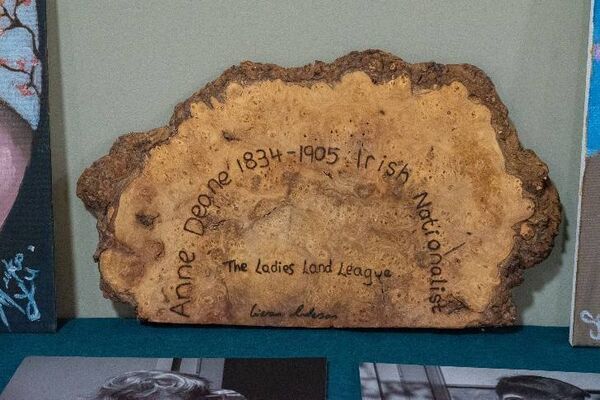 Anne Deane 1834-1905 Irish Nationalist
The Ladies Land League